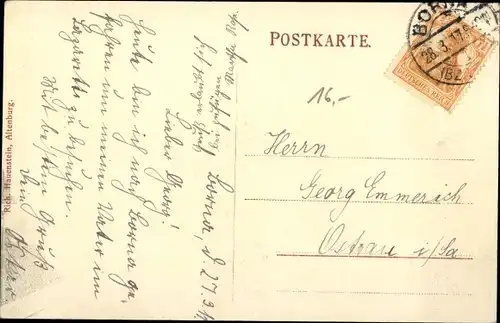 POSTKARTE.
BORNA
28.3.17
DEUTSCHES REICH
16,-
Herrn
Georg Emmerich
Ostrau i/Sa
Borna, d 27.3.17
Lieber Georg!
Heute bin ich nach Borna ge-
fahren um meinen Vater im
Lazarett zu besuchen.
Mit besten Gruß
Dein
Rich. Hauenstein, Altenburg.